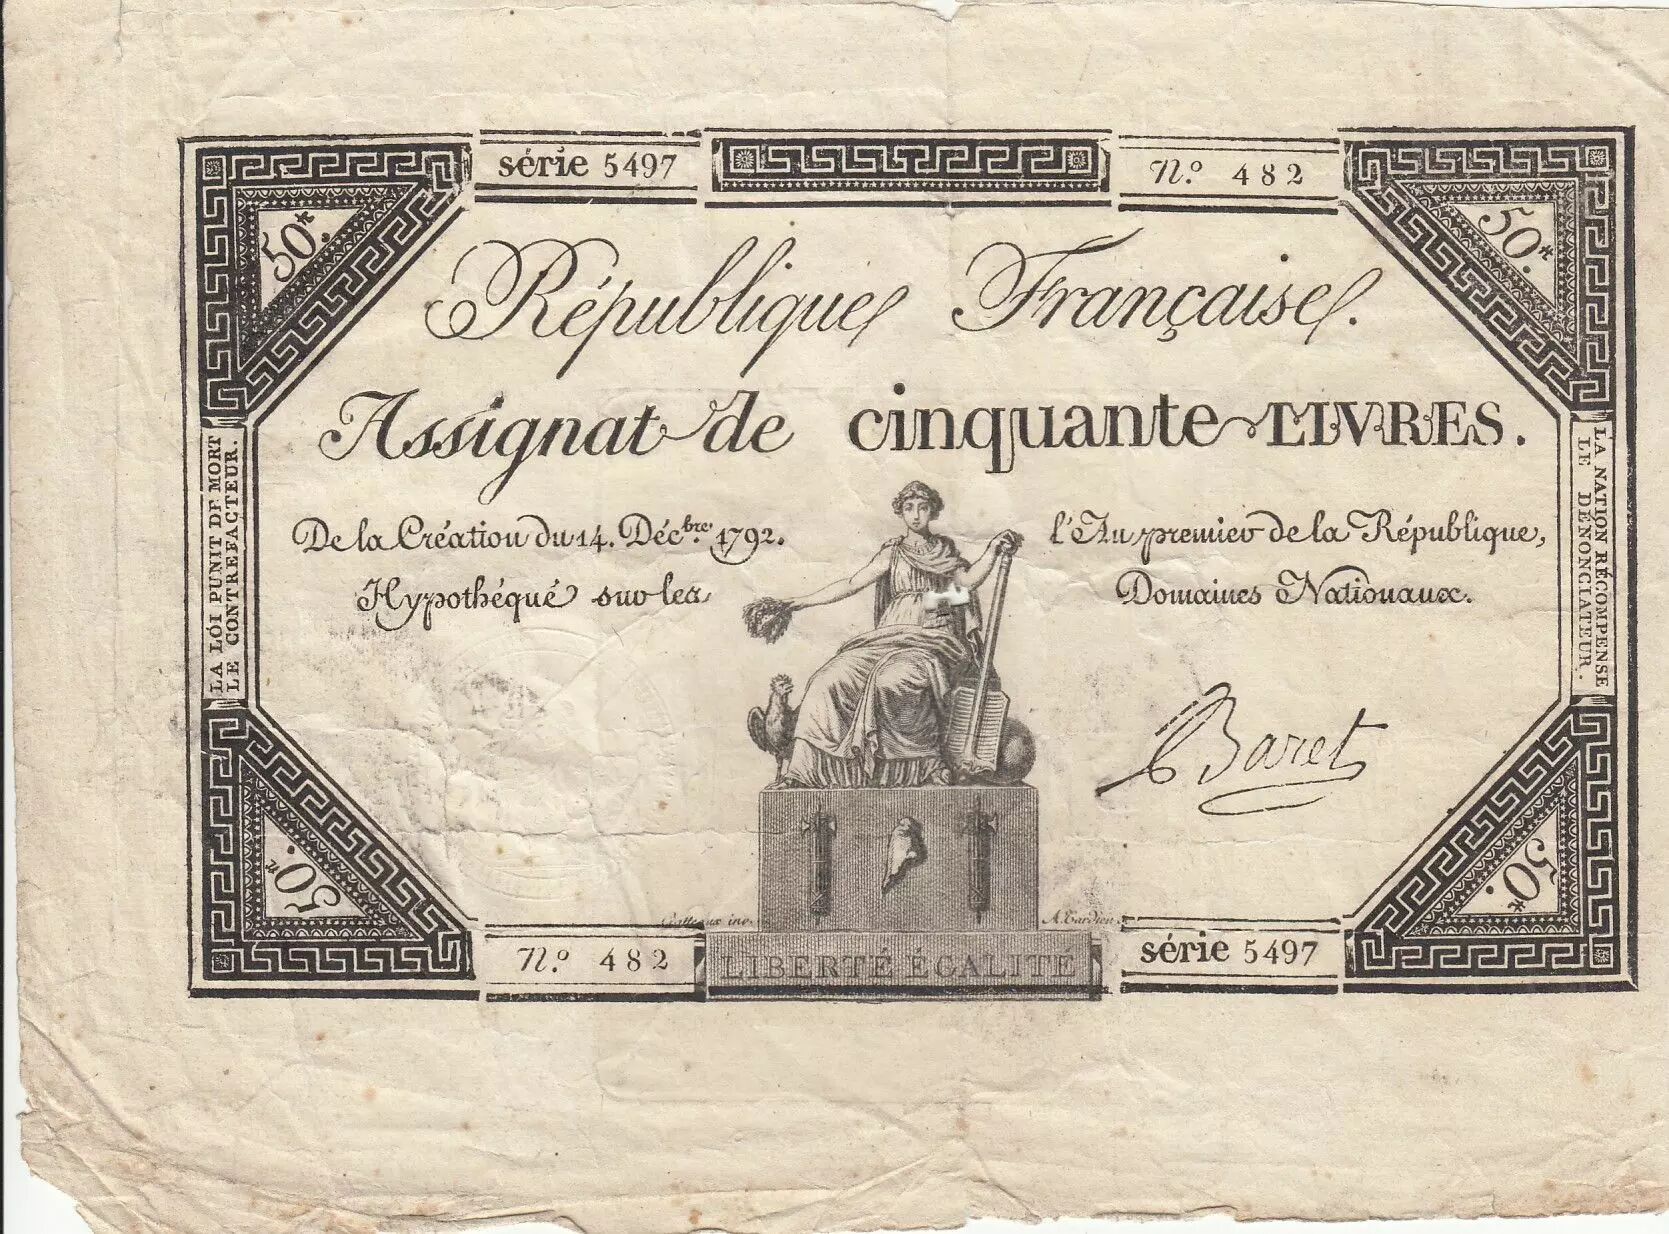 série 5497
N.º 482
50.ᵗᵗ
50.ᵗᵗ
République Française.
Assignat de cinquante LIVRES.
De la Création du 14. Décbre. 1792.
l'An premier de la République,
Hypothéqué sur les
Domaines Nationaux.
LA LOI PUNIT DE MORT
LE CONTREFACTEUR.
LA NATION RÉCOMPENSE
LE DÉNONCIATEUR.
Baret
50.ᵗᵗ
50.ᵗᵗ
Gatteaux inv.
A. Tardieu
N.º 482
LIBERTÉ ÉGALITÉ
série 5497